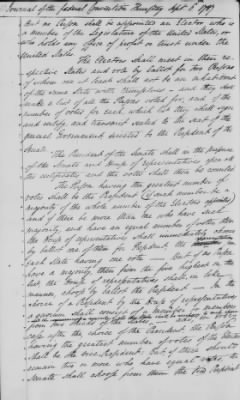 Journal of the federal Convention Thursday Sept. 6 1787
But no Person shall be appointed an Elector, who is
a member of the Legislature of the United States, or
who holds any office of profit or trust under the
United States.
The Electors shall meet in their re-
spective States and vote by ballot for two Persons
of whom one at least shall not be an inhabitant
of the same State with themselves — and they shall
make a list of all the Persons voted for, and of the
number of votes for each, which list they shall sign
and certify, and transmit sealed to the seat of the
general Government directed to the President of the
Senate.
The President of the Senate shall in the presence
of the Senate and House of representatives open all
the certificates and the votes shall then be counted
The Person having the greatest number of
votes shall be the President (if such number be a
majority of the whole number of the Electors appointed)
and if there be more than one who have such
majority, and have an equal number of votes, then
the House of representatives shall immediately choose
by ballot one of them for President, the
each State having one vote — But if no Person
have a majority, then from the five highest on the
list, the House of representatives shall, in like
manner, choose by ballot the President — In the
choice of a President by the House of representatives
a quorum shall consist of a member or members
from two thirds of the States
case after the choice of the President the Person
having the greatest number of votes of the Electors
shall be the vice President: But, if there should
remain two or more who have equal votes, the
Senate shall choose from them the vice President